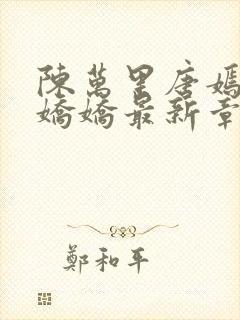 陳萬里唐嫣
嬌嬌最新章
鄭和平